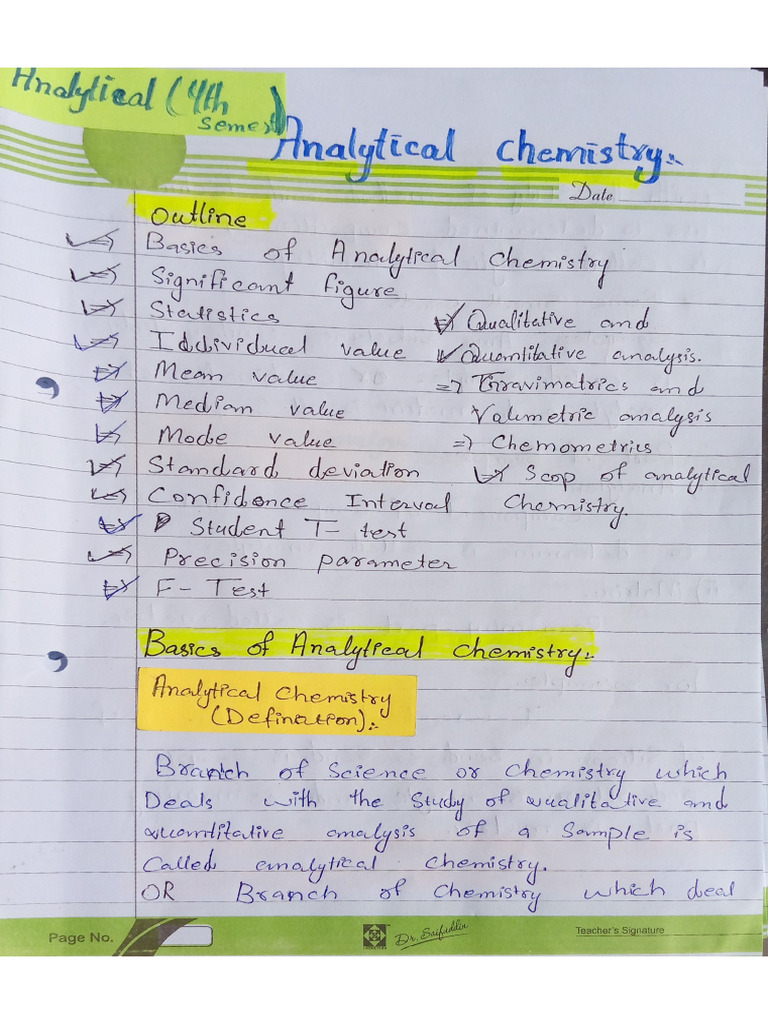 Analytical (4th
semest)
Analytical chemistry:-
Date
Outline
Basics of Analytical Chemistry
Significant figure
Statistics
Iddividucal value
Mean value
Median value
Mode value
Standard deviation
Confidence Interval
Student T- test
Precision parameter
F- Test
Qualitative and
Quantitative analysis.
=> Gravimatrics and
Valumetric analysis
=> Chemometrics
Scop of analytical
Chemistry.
Basics of Analytical chemistry:-
Analytical Chemistry
(Defination):-
Branch of Science or Chemistry which
Deals with the Study of qualitative and
quantitative analysis of a Sample is
Called analytical chemistry.
OR Branch of Chemistry which deal
Page No.
Dr. Saifuddin
Teacher's Signature